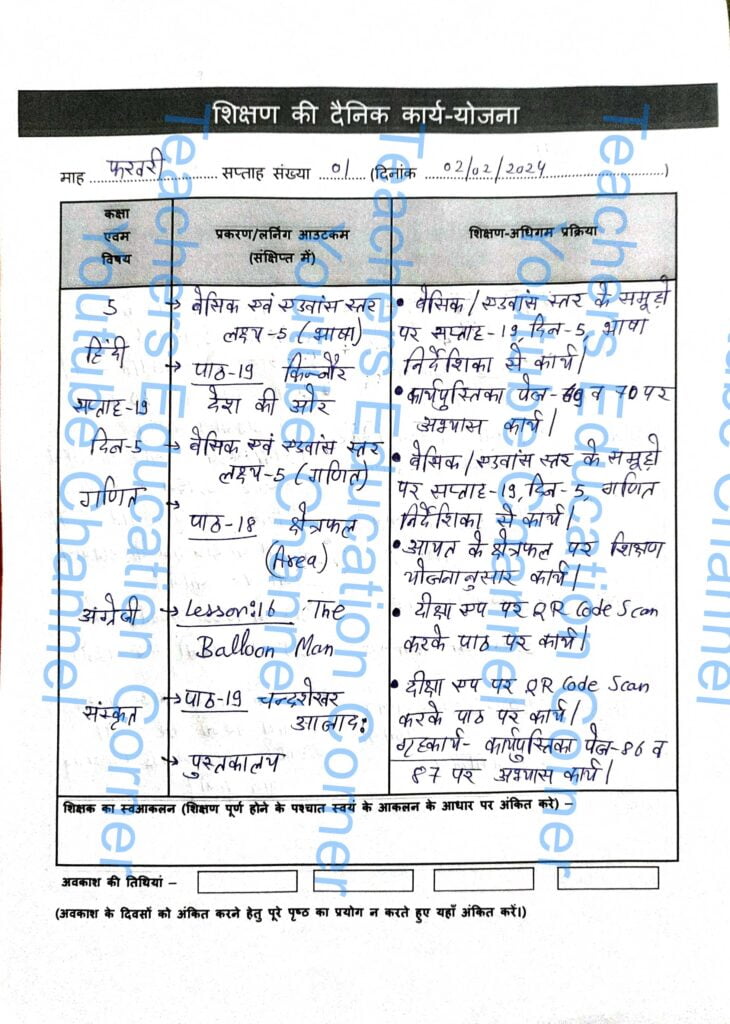 शिक्षण की दैनिक कार्य-योजना
माह फरवरी सप्ताह संख्या 01 (दिनांक 02/02/2024)
कक्षा एवम विषय
प्रकरण/लर्निंग आउटकम (संक्षिप्त में)
शिक्षण-अधिगम प्रक्रिया
5
हिंदी
सप्ताह-19
दिन-5
→ बेसिक एवं एडवांस स्तर
लक्ष्य-5 (भाषा)
→ पाठ-19 किन्नौर
देश की ओर
• बेसिक/एडवांस स्तर के समूहों
पर सप्ताह-19, दिन-5, भाषा
निर्देशिका से कार्य।
• कार्यपुस्तिका पेज-69 व 70 पर
अभ्यास कार्य।
गणित
→ बेसिक एवं एडवांस स्तर
लक्ष्य-5 (गणित)
→ पाठ-18 क्षेत्रफल
(Area)
• बेसिक/एडवांस स्तर के समूहों
पर सप्ताह-19, दिन-5, गणित
निर्देशिका से कार्य।
• आयत के क्षेत्रफल पर शिक्षण
योजनानुसार कार्य।
अंग्रेजी
→ Lesson:16 The
Balloon Man
• दीक्षा एप पर QR Code Scan
करके पाठ पर कार्य।
संस्कृत
→ पाठ-19 चन्द्रशेखर
आजाद:
→ पुस्तकालय
• दीक्षा एप पर QR Code Scan
करके पाठ पर कार्य।
गृहकार्य- कार्यपुस्तिका पेज-86 व
87 पर अभ्यास कार्य।
शिक्षक का स्वआकलन (शिक्षण पूर्ण होने के पश्चात स्वयं के आकलन के आधार पर अंकित करे) –
अवकाश की तिथियां –
(अवकाश के दिवसों को अंकित करने हेतु पूरे पृष्ठ का प्रयोग न करते हुए यहाँ अंकित करें।)
Teachers Education Corner
Youtube Channel
Teachers Education Corner
Youtube Channel
Teachers Education Corner
Youtube Channel